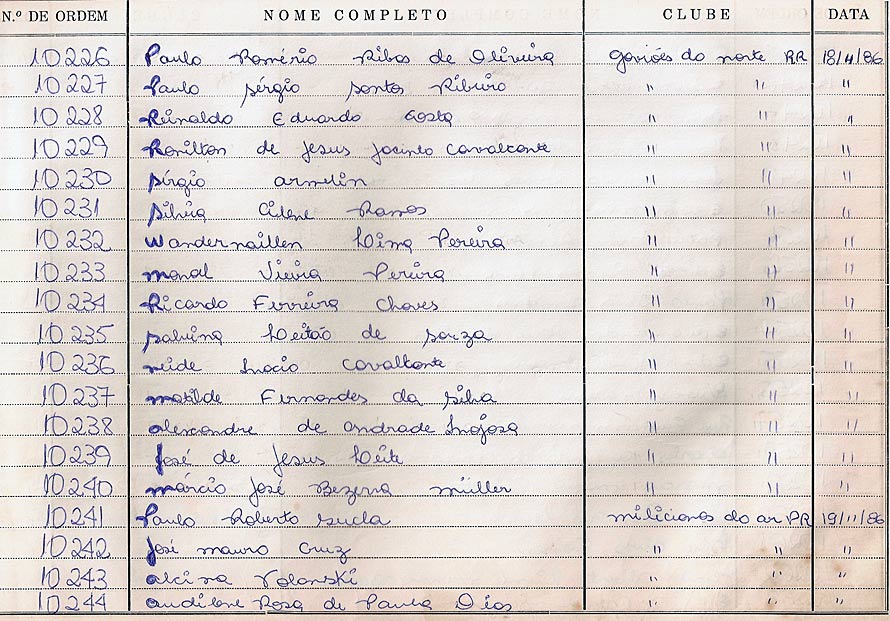 N.º DE ORDEM NOME COMPLETO CLUBE DATA
10226 Paulo Romério Ribas de Oliveira gaviões do norte RR 18/4/86
10227 Paulo sérgio santos Ribeiro " " "
10228 Reinaldo Eduardo Costa " " "
10229 Ronilton de jesus jacinto cavalcante " " "
10230 sérgio armelin " " "
10231 silvia Cilene Ramos " " "
10232 Wandernaillen Lima Pereira " " "
10233 manoel Vieira Pereira " " "
10234 Ricardo Ferreira chaves " " "
10235 salvina Leitão de souza " " "
10236 neide Inacio cavalcante " " "
10237 matilde Fernandes da silva " " "
10238 alexandre de andrade Inojosa " " "
10239 José de Jesus Leite " " "
10240 márcio José Bezerra müller " " "
10241 Paulo Roberto sucla milicianos do ar PR 19/11/86
10242 José mauro Cruz " " "
10243 alcina Volanski " " "
10244 audilene Rosa de Paula Dias " " "